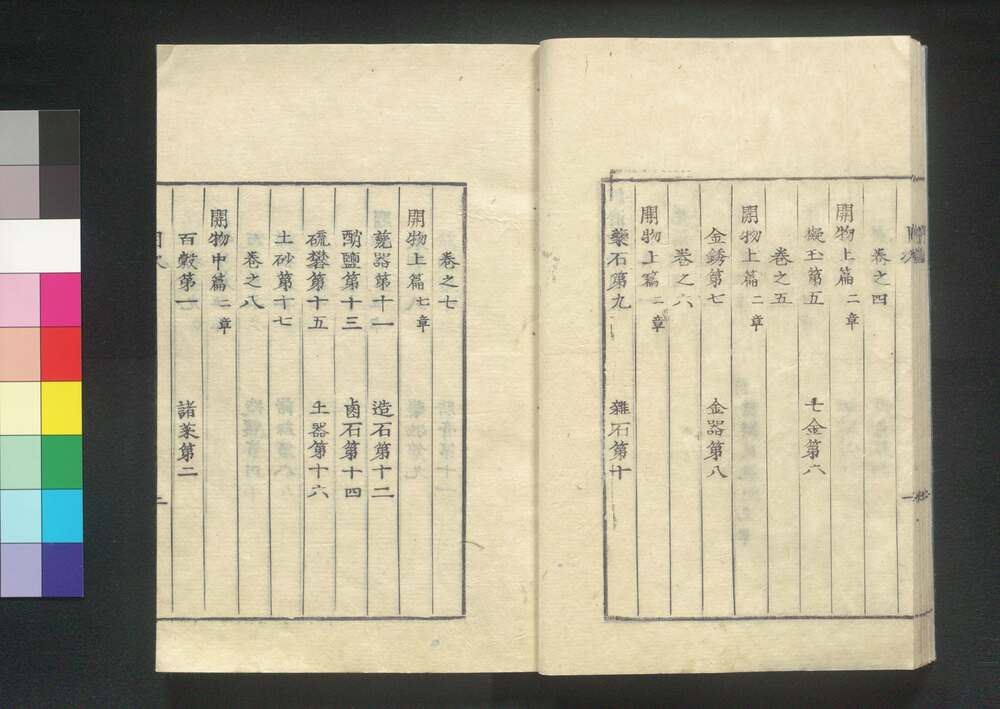 巻之四
開物上篇 二章
擬玉第五 七金第六
巻之五
開物上篇 二章
金銹第七 金器第八
巻之六
開物上篇 二章
藥石第九 雜石第十
巻之七
開物上篇 七章
甆器第十一 造石第十二
消鹽第十三 鹵石第十四
硫礬第十五 土器第十六
土砂第十七
巻之八
開物中篇 二章
百穀第一 諸菜第二
目次
二